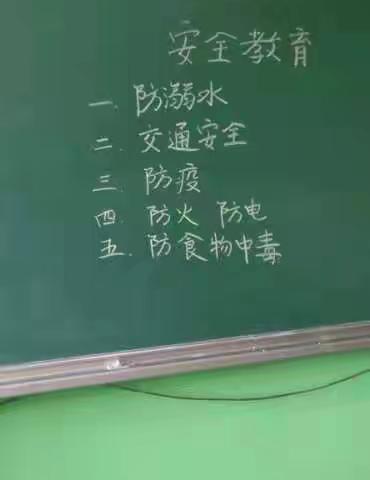 安全教育
一. 防溺水
二. 交通安全
三. 防疫
四. 防火 防电
五. 防食物中毒